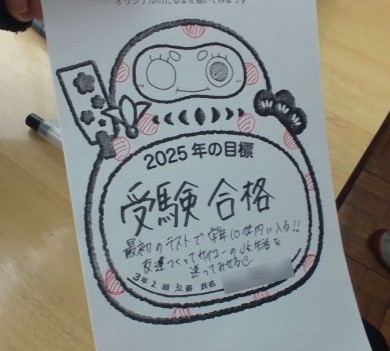 オリジナルのだるまを描いてみよう
2025年の目標
受験合格
最初のテストで学年10位内に入る!!
友達つくってサイコーのJK生活を
送ってみせる
3年1組32番 氏名